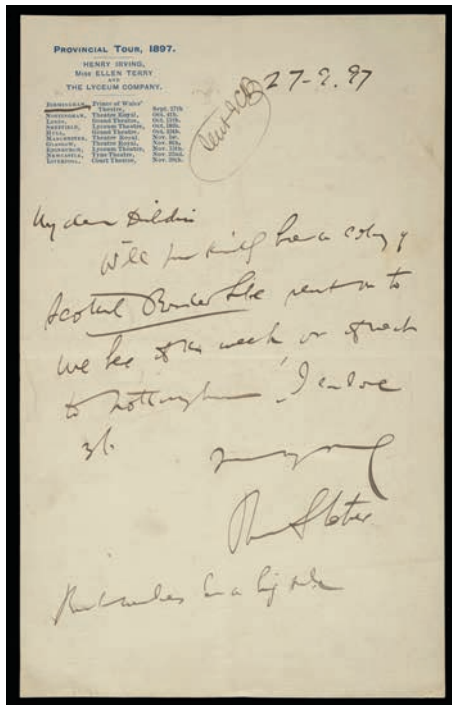 PROVINCIAL TOUR, 1897.
HENRY IRVING,
MISS ELLEN TERRY
AND
THE LYCEUM COMPANY.
BIRMINGHAM, Prince of Wales' Theatre, Sept. 27th
NOTTINGHAM, Theatre Royal, Oct. 4th.
LEEDS, Grand Theatre, Oct. 11th.
SHEFFIELD, Lyceum Theatre, Oct. 18th.
HULL, Grand Theatre, Oct. 25th.
MANCHESTER, Theatre Royal, Nov. 1st.
GLASGOW, Theatre Royal, Nov. 8th.
EDINBURGH, Lyceum Theatre, Nov. 15th.
NEWCASTLE, Tyne Theatre, Nov. 22nd.
LIVERPOOL, Court Theatre, Nov. 29th.
27-9.97
Sent
My dear
Will you kindly have a copy of
sent on to
me here this week or next
to Nottingham. I enclose
3/.
Bram Stoker
Best wishes for a big sale